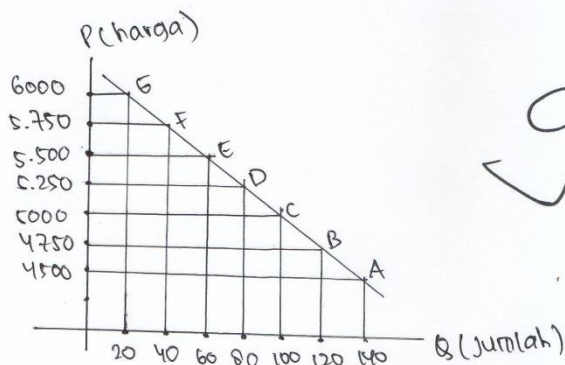 P(harga)
6000
G
5.750
F
5.500
E
5.250
D
5000
C
4750
B
4500
A
20 40 60 80 100 120 140
Q (Jumlah)